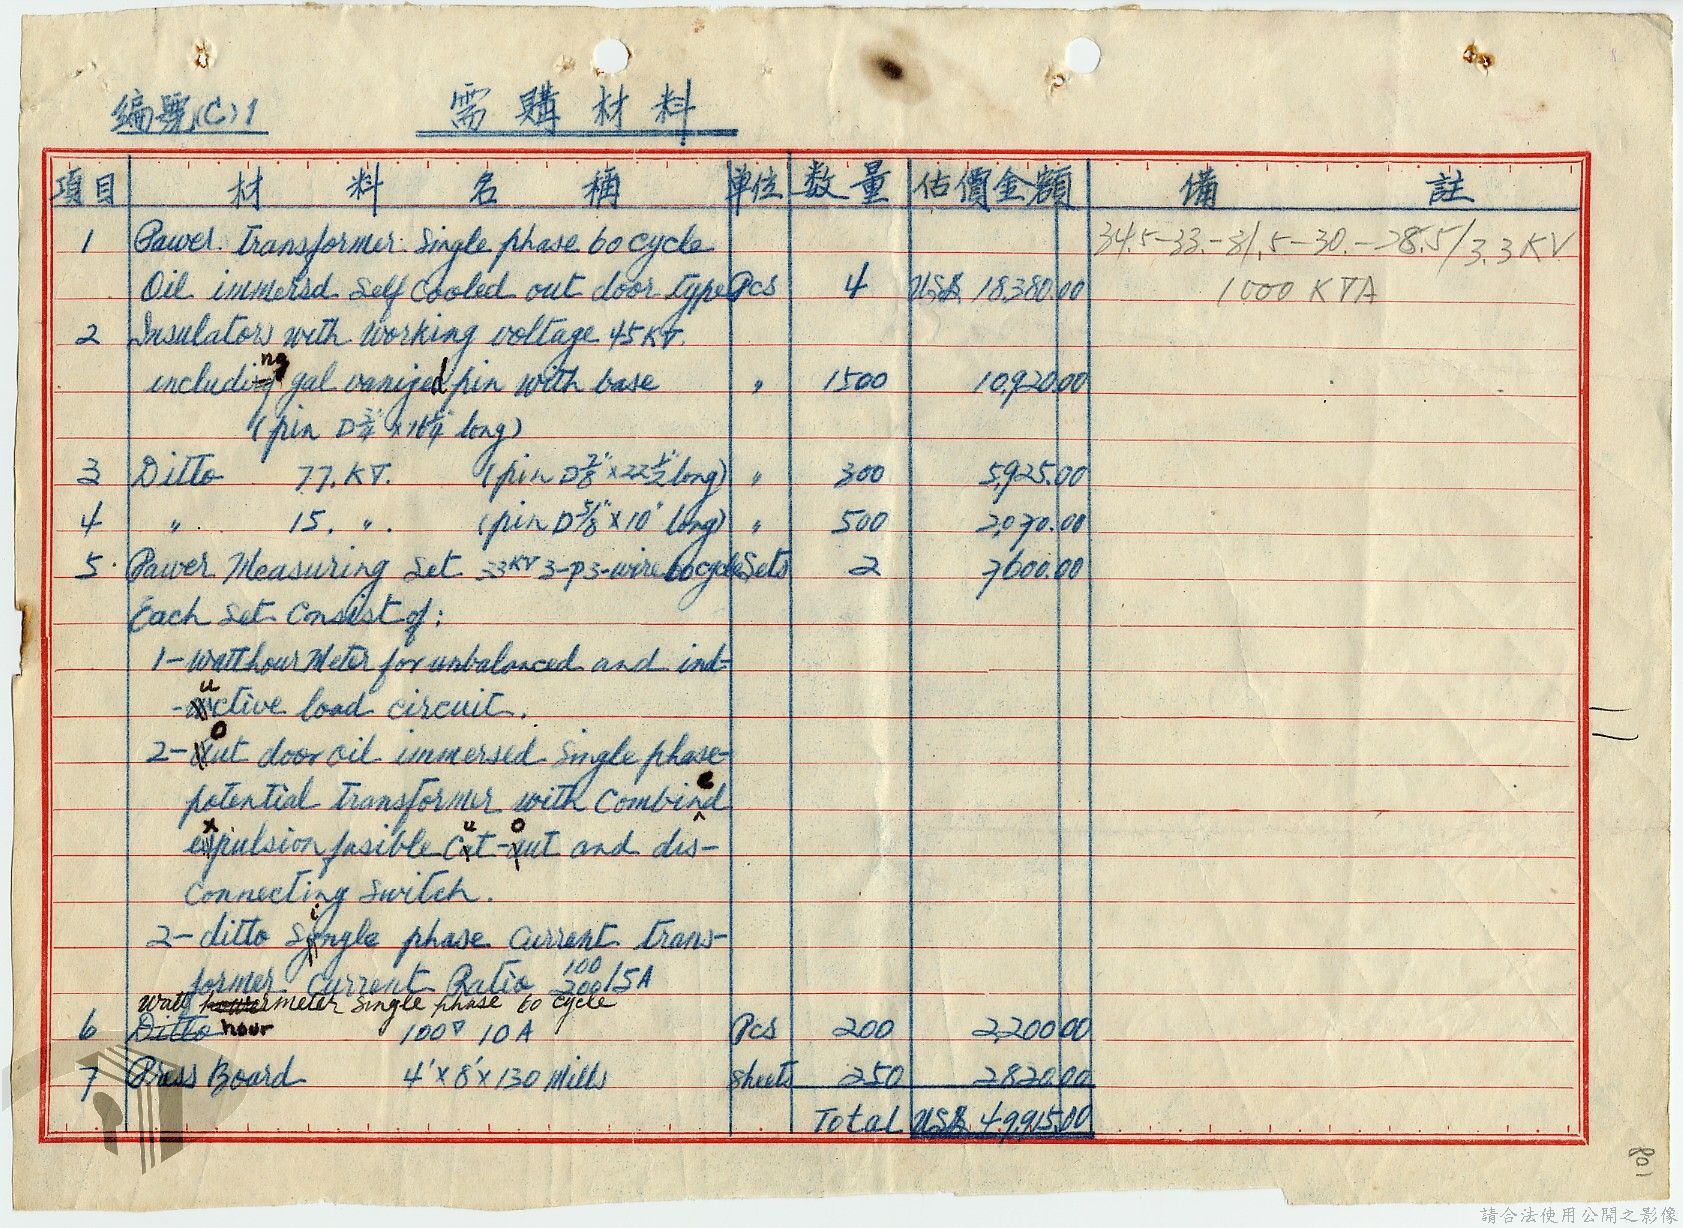 編號(C)1 需購材料
項目 材料名稱 単位 数量 估價金額 備註
1 Pawer Transformer: Single phase 60 cycle 34.5-33.-31.5-30.-28.5/3.3KV
Oil immersd Self Cooled out door type Pcs 4 US$ 18,380.00 1000 KVA
2 Insulators with Working voltage 45KV.
including galvanized pin with base 〃 1500 10,920.00
(pin D3/4"×16 1/4" long)
3 Ditto 77.KV. (pin D7/8"×22 1/2" long) 〃 300 5,925.00
4 〃 15. 〃. (pin D5/8"×10" long) 〃 500 2,070.00
5. Pawer Measuring Set 33KV 3-p 3-wire 60 cycle Sets 2 7,600.00
Each Set Consist of:
1- Watthour Meter for unbalanced and ind-
-uctive load circuit.
2- Out door oil immersed Single phase-
potential transformer with Combined
expulsion fusible Cut-out and dis-
Connecting Switch.
2- ditto Single phase Current trans-
former Current Ratio 100/200/5A
Watt hour meter Single phase 60 cycle
6 Ditto hour 100V 10A Pcs 200 2,200.00
7 Press Board 4'×8'×130 Mills Sheets 250 2,820.00
Total US$ 49,915.00
108
請合法使用公開之影像